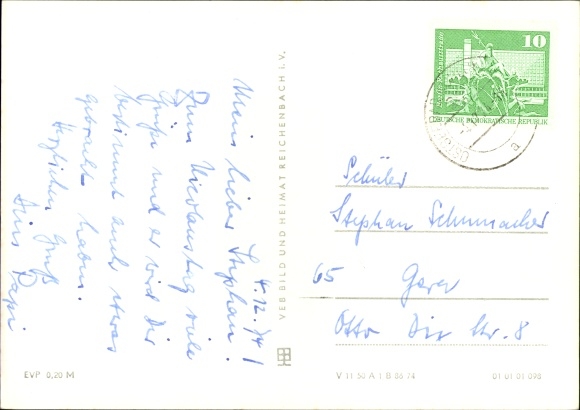 4.12.74
Mein lieber Stephan!
Zum Nicolaustag viele
Grüße und er wird Dir
bestimmt auch etwas
gebracht haben.
Herzlichen Gruß
Dein Papi
VEB BILD UND HEIMAT REICHENBACH I. V.
10
DEUTSCHE DEMOKRATISCHE REPUBLIK
Schüler
Stephan Schumacher
65 Gera
Otto Dix Str. 8
EVP 0,20 M
V 11 50 A 1 B 06 74
01 01 01 098